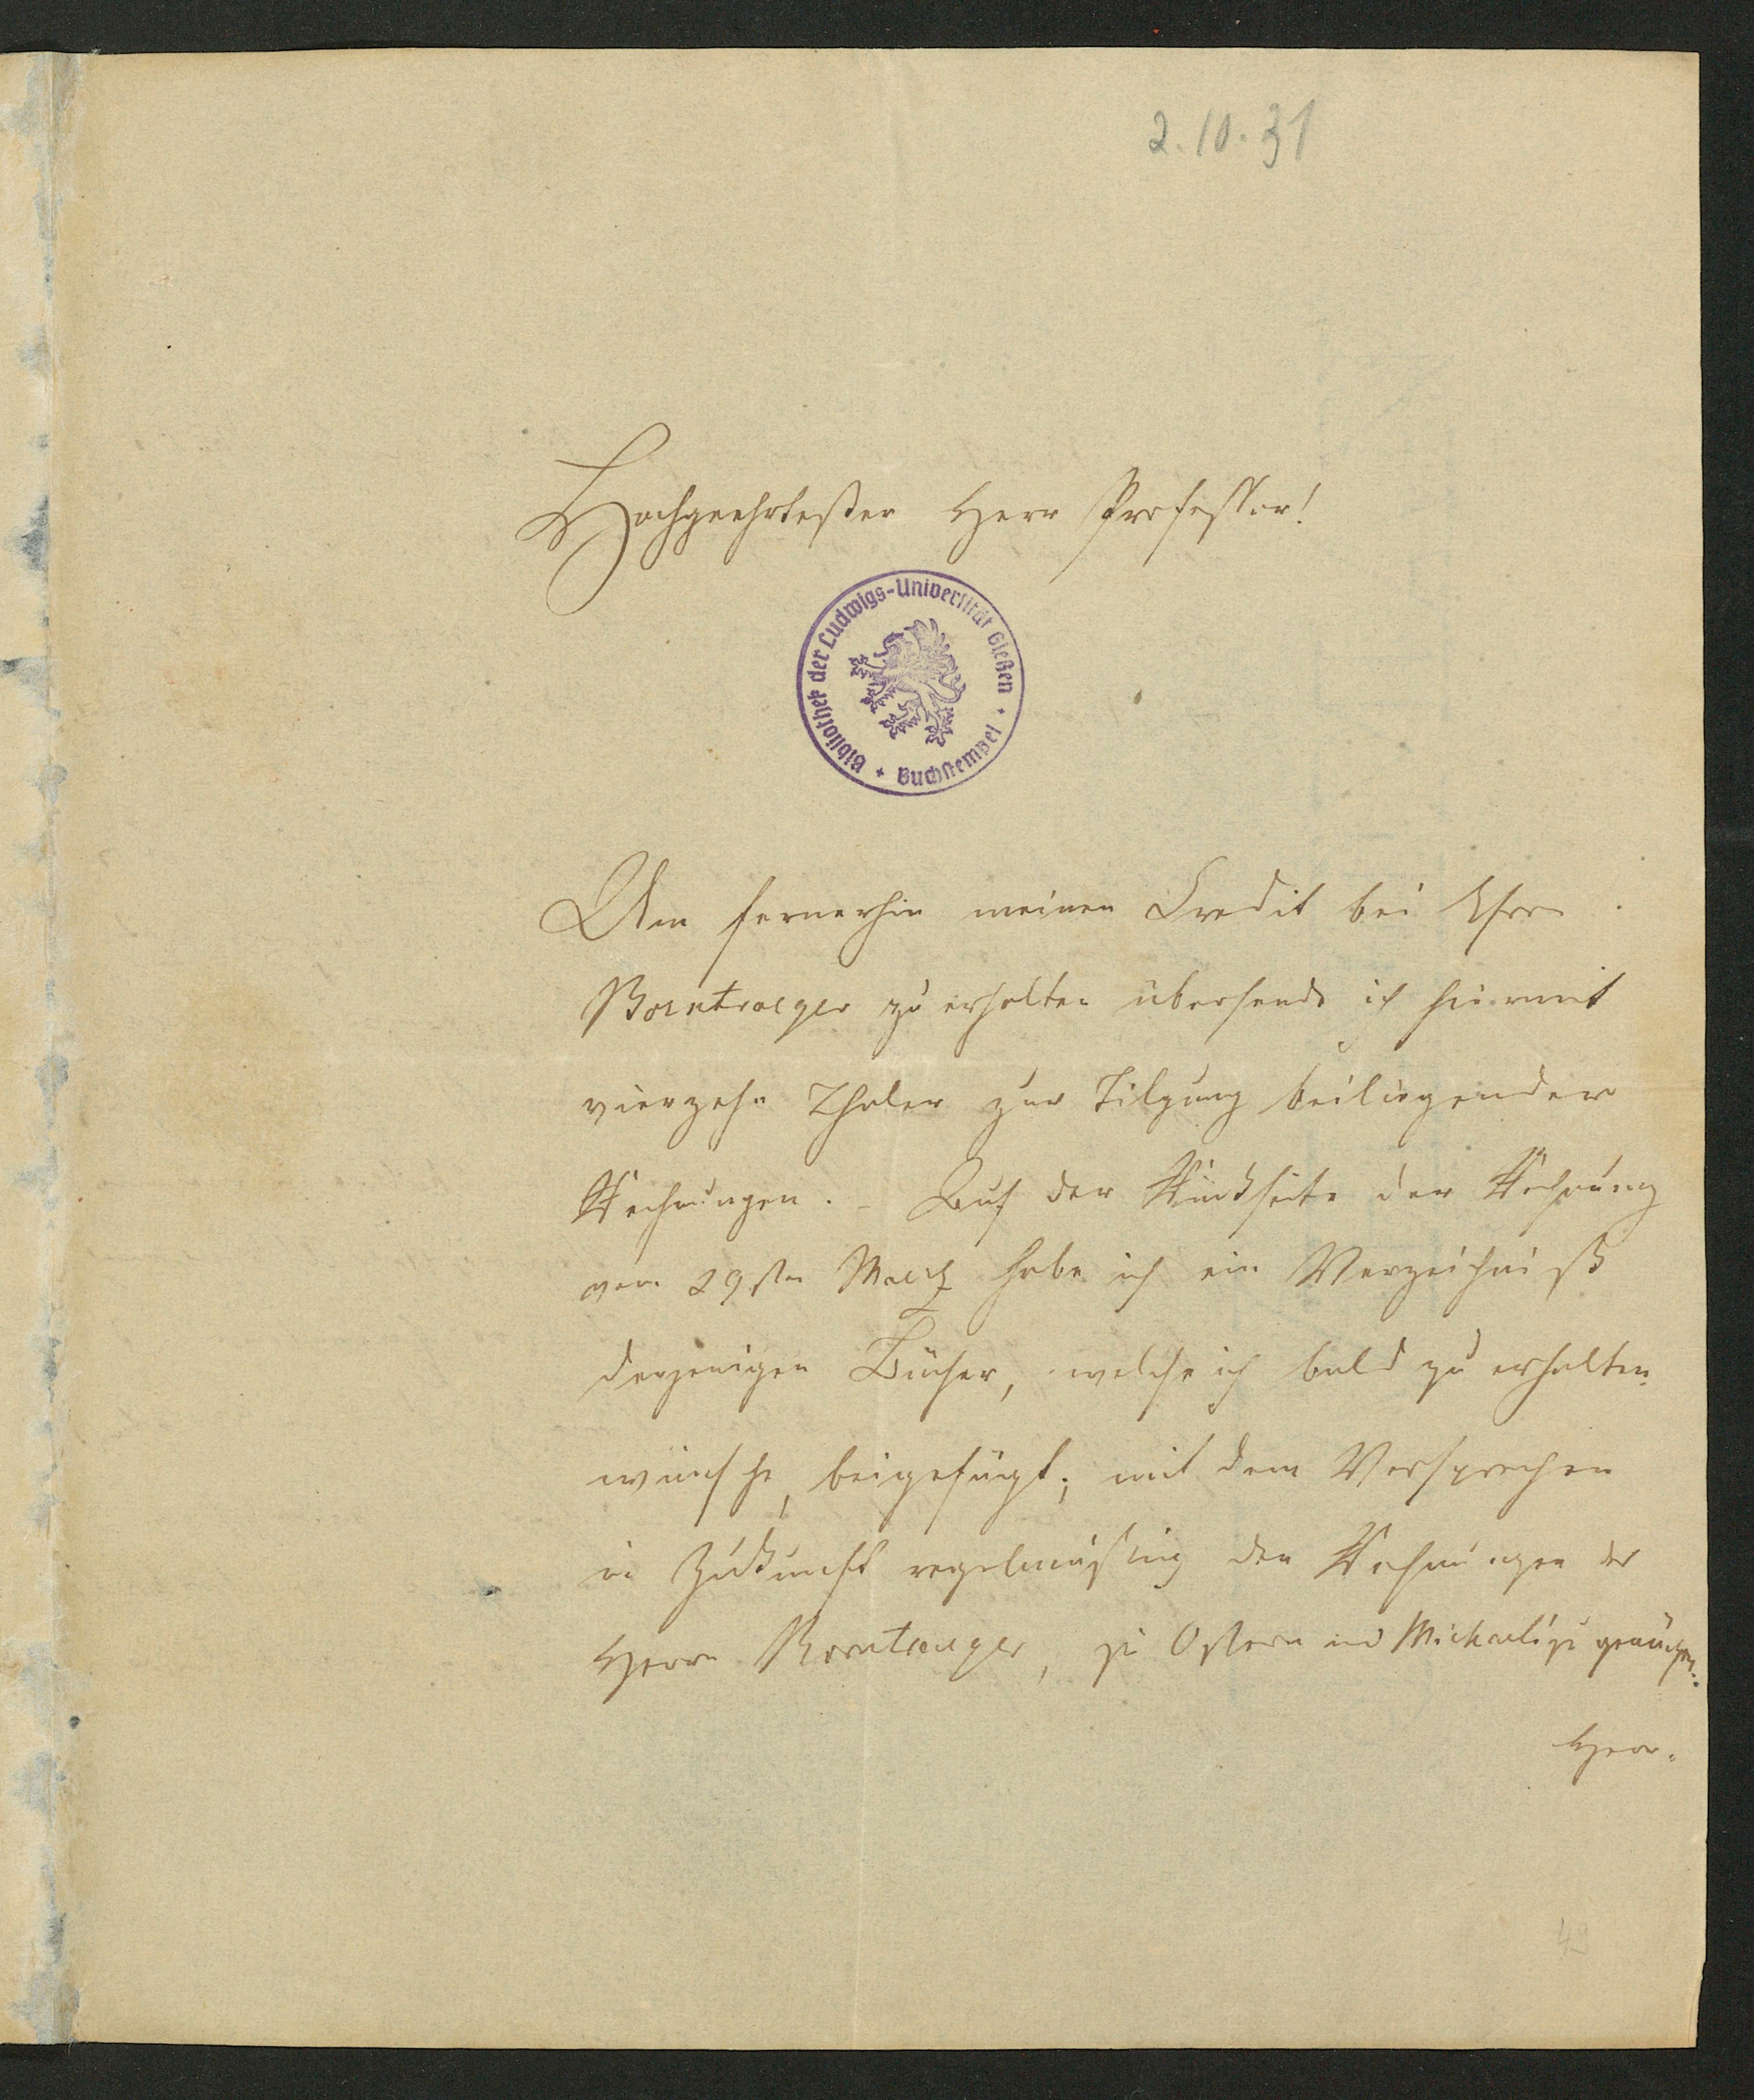 2.10.31
Hochgeehrtester Herr Professor!
Bibliothek der Ludwigs-Universität Gießen + Buchstempel +
Um fernerhin meinen Credit bei Herrn
Borntraeger zu erhalten übersende ich hiermit
vierzehn Thaler zur Tilgung beiliegender
Rechnungen. – Auf der Rückseite der Rechnung
vom 29sten Maerz habe ich ein Verzeichniß
derjenigen Bücher, welche ich bald zu erhalten
wünsche, beigefügt; mit dem Versprechen
in Zukunft regelmäßig den Rechnungen des
Herrn Borntraeger, zu Ostern und Michaeli zu genügen.
Herr
49